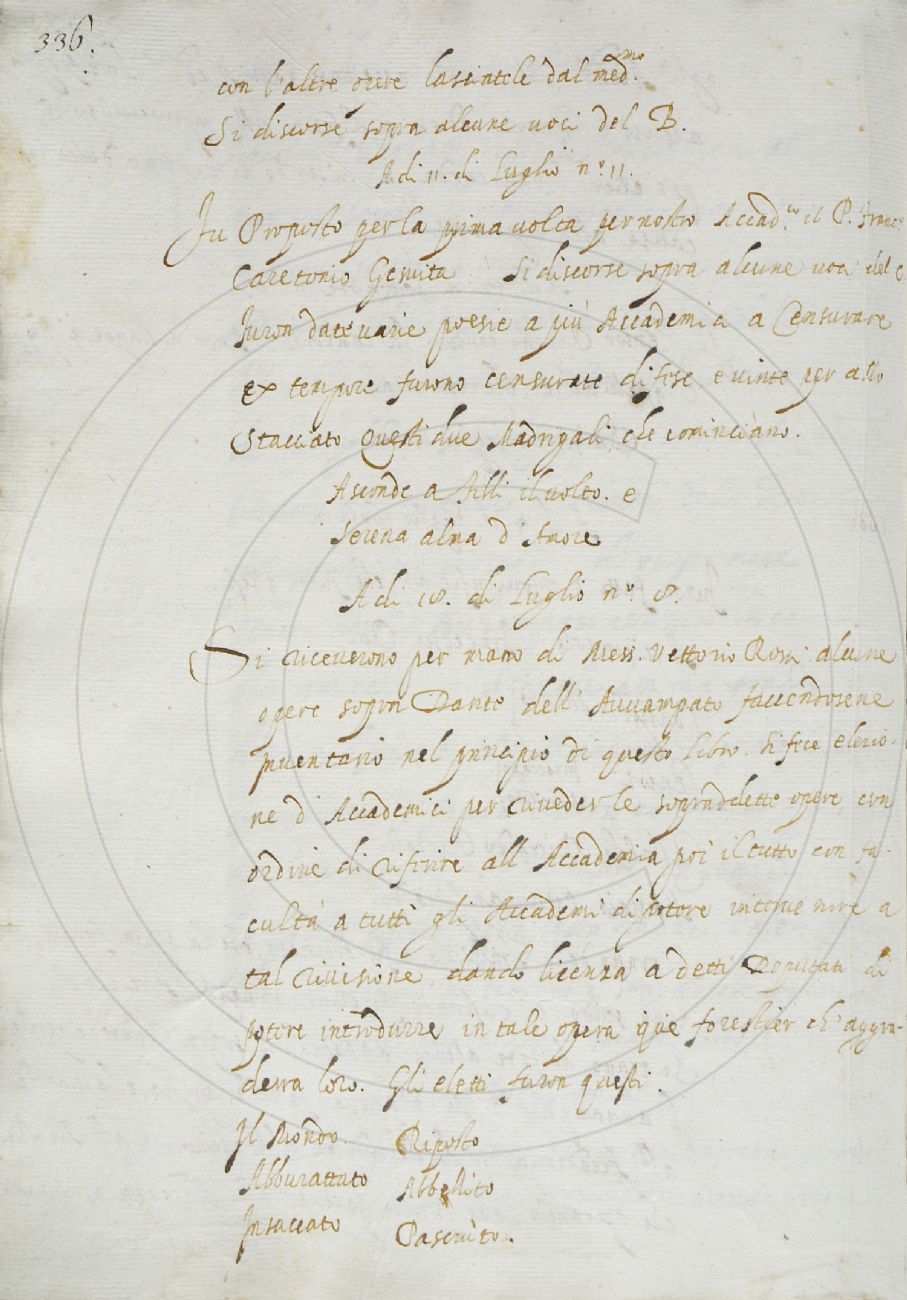 336.
con l'altre opere lasciatele dal med.mo
Si discorse sopra alcune voci del B.
A di 11. di Luglio n.o 11.
Fu Proposto per la prima volta per nostro Accad.co il P. Franc.o
Gesuita. Si discorse sopra alcune voci del C
Furon date varie poesie a più Accademici a Censurare
ex tempore furono censurate difese e vinte per allo
Stacciato Questi due Madrigali, che cominciano.
Asconde a Filli il volto. e
Serena alma d'Amore
A di 18. di Luglio n.o 8.
Si riceverono per mano di Mess. Vettorio Rossi alcune
opere sopra Dante dell'Avvampato faccendosene
inventario nel principio di questo Libro. Si fece elezio-
ne d'Accademici per riveder le sopraddette opere, con
ordine di riferire all'Accademia poi il tutto con fa-
cultà a tutti gli Accademi di potere intervenire a
tal rivisione, dando licenza a detti Deputati di
potere introdurre in tale opera que' forestier ch'aggra-
derra loro. Gli eletti furon questi.
Il Mondo. Riposto
Abburattato Abbellito
Insaccato Pasciuto.